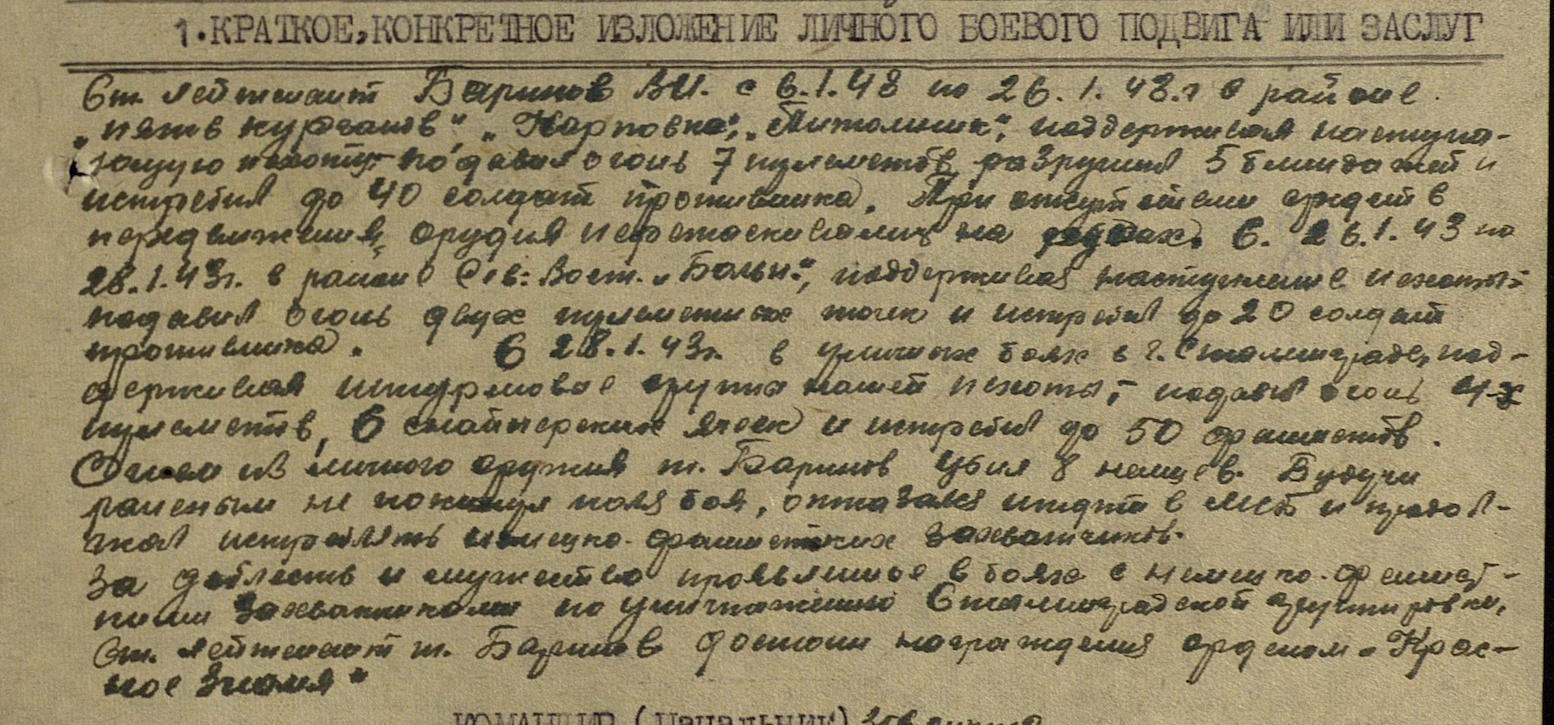 1. КРАТКОЕ, КОНКРЕТНОЕ ИЗЛОЖЕНИЕ ЛИЧНОГО БОЕВОГО ПОДВИГА ИЛИ ЗАСЛУГ
Ст. лейтенант Баринов В.И. с 6.1.43 по 26.1.43.г в районе
„пять курганов“ „Карповка“, „Питомник“, поддерживая наступа-
ющую пехоту подавил огонь 7 пулеметов, разрушил 5 блиндажей и
истребил до 40 солдат противника. При отсутствии средств
передвижения, орудия перетаскивались на С 26.1.43 по
28.1.43г. в районе Сев: Вост. „Больн.“, поддерживая наступление пехоты-
подавил огонь двух пулеметных точек и истребил до 20 солдат
противника. С 28.1.43г. в уличных боях в г. Сталинграде, под-
держивая штурмовые группы нашей пехоты, подавил огонь 4-х
пулеметов, 6 снайперских ячеек и истребил до 50 фашистов.
Огнем из личного оружия т. Баринов убил 8 немцев. Будучи
раненым не покинул поля боя, отказался итдти в МСБ и продол-
жал истреблять немецко-фашистских захватчиков.
За доблесть и мужество проявленное в боях с немецко-фашист-
кими захватчиками по уничтожению Сталинградской группировки,
Ст. лейтенант т. Баринов достоин награждения орденом „Крас-
ное Знамя“
КОМАНДИР (Начальник)